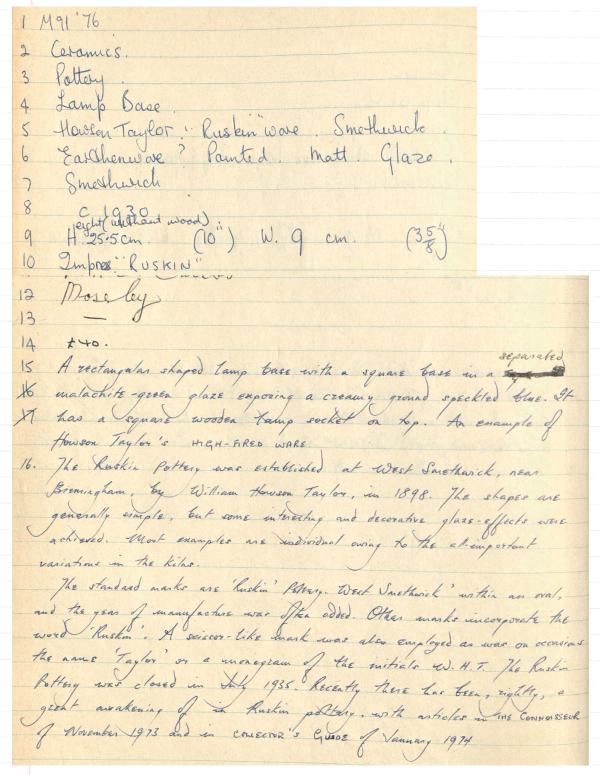 1 M91 '76
2 Ceramics.
3 Pottery.
4 Lamp Base.
5 Howson Taylor. "Ruskin" ware. Smethwick.
6 Earthenware? Painted. Matt. Glaze.
7 Smethwick
8 C 1930
eight (without wood).
9 H. 25.5cm. (10") W. 9 cm. (3 5/8")
10 Impress "RUSKIN"
12 Moseley
13 —
14 £40.
separated
15 A rectangular shaped lamp base with a square base in a
16 malachite-green glaze exposing a creamy ground speckled blue. It
17 has a square wooden lamp socket on top. An example of
Howson Taylor's HIGH-FIRED WARE
16. The Ruskin Pottery was established at West Smethwick, near
Birmingham, by William Howson Taylor, in 1898. The shapes are
generally simple, but some interesting and decorative glaze-effects were
achieved. Most examples are individual owing to the all-important
variations in the kilns.
The standard marks are 'Ruskin' Pottery. West Smethwick' within an oval,
and the year of manufacture was often added. Other marks incorporate the
word 'Ruskin'. A scissor-like mark was also employed as was on occasions
the name 'Taylor' or a monogram of the initials W.H.T. The Ruskin
Pottery was closed in July 1935. Recently there has been, rightly, a
great awakening of in Ruskin pottery, with articles in THE CONNOISSEUR
of November 1973 and in COLLECTOR'S GUIDE of January 1974